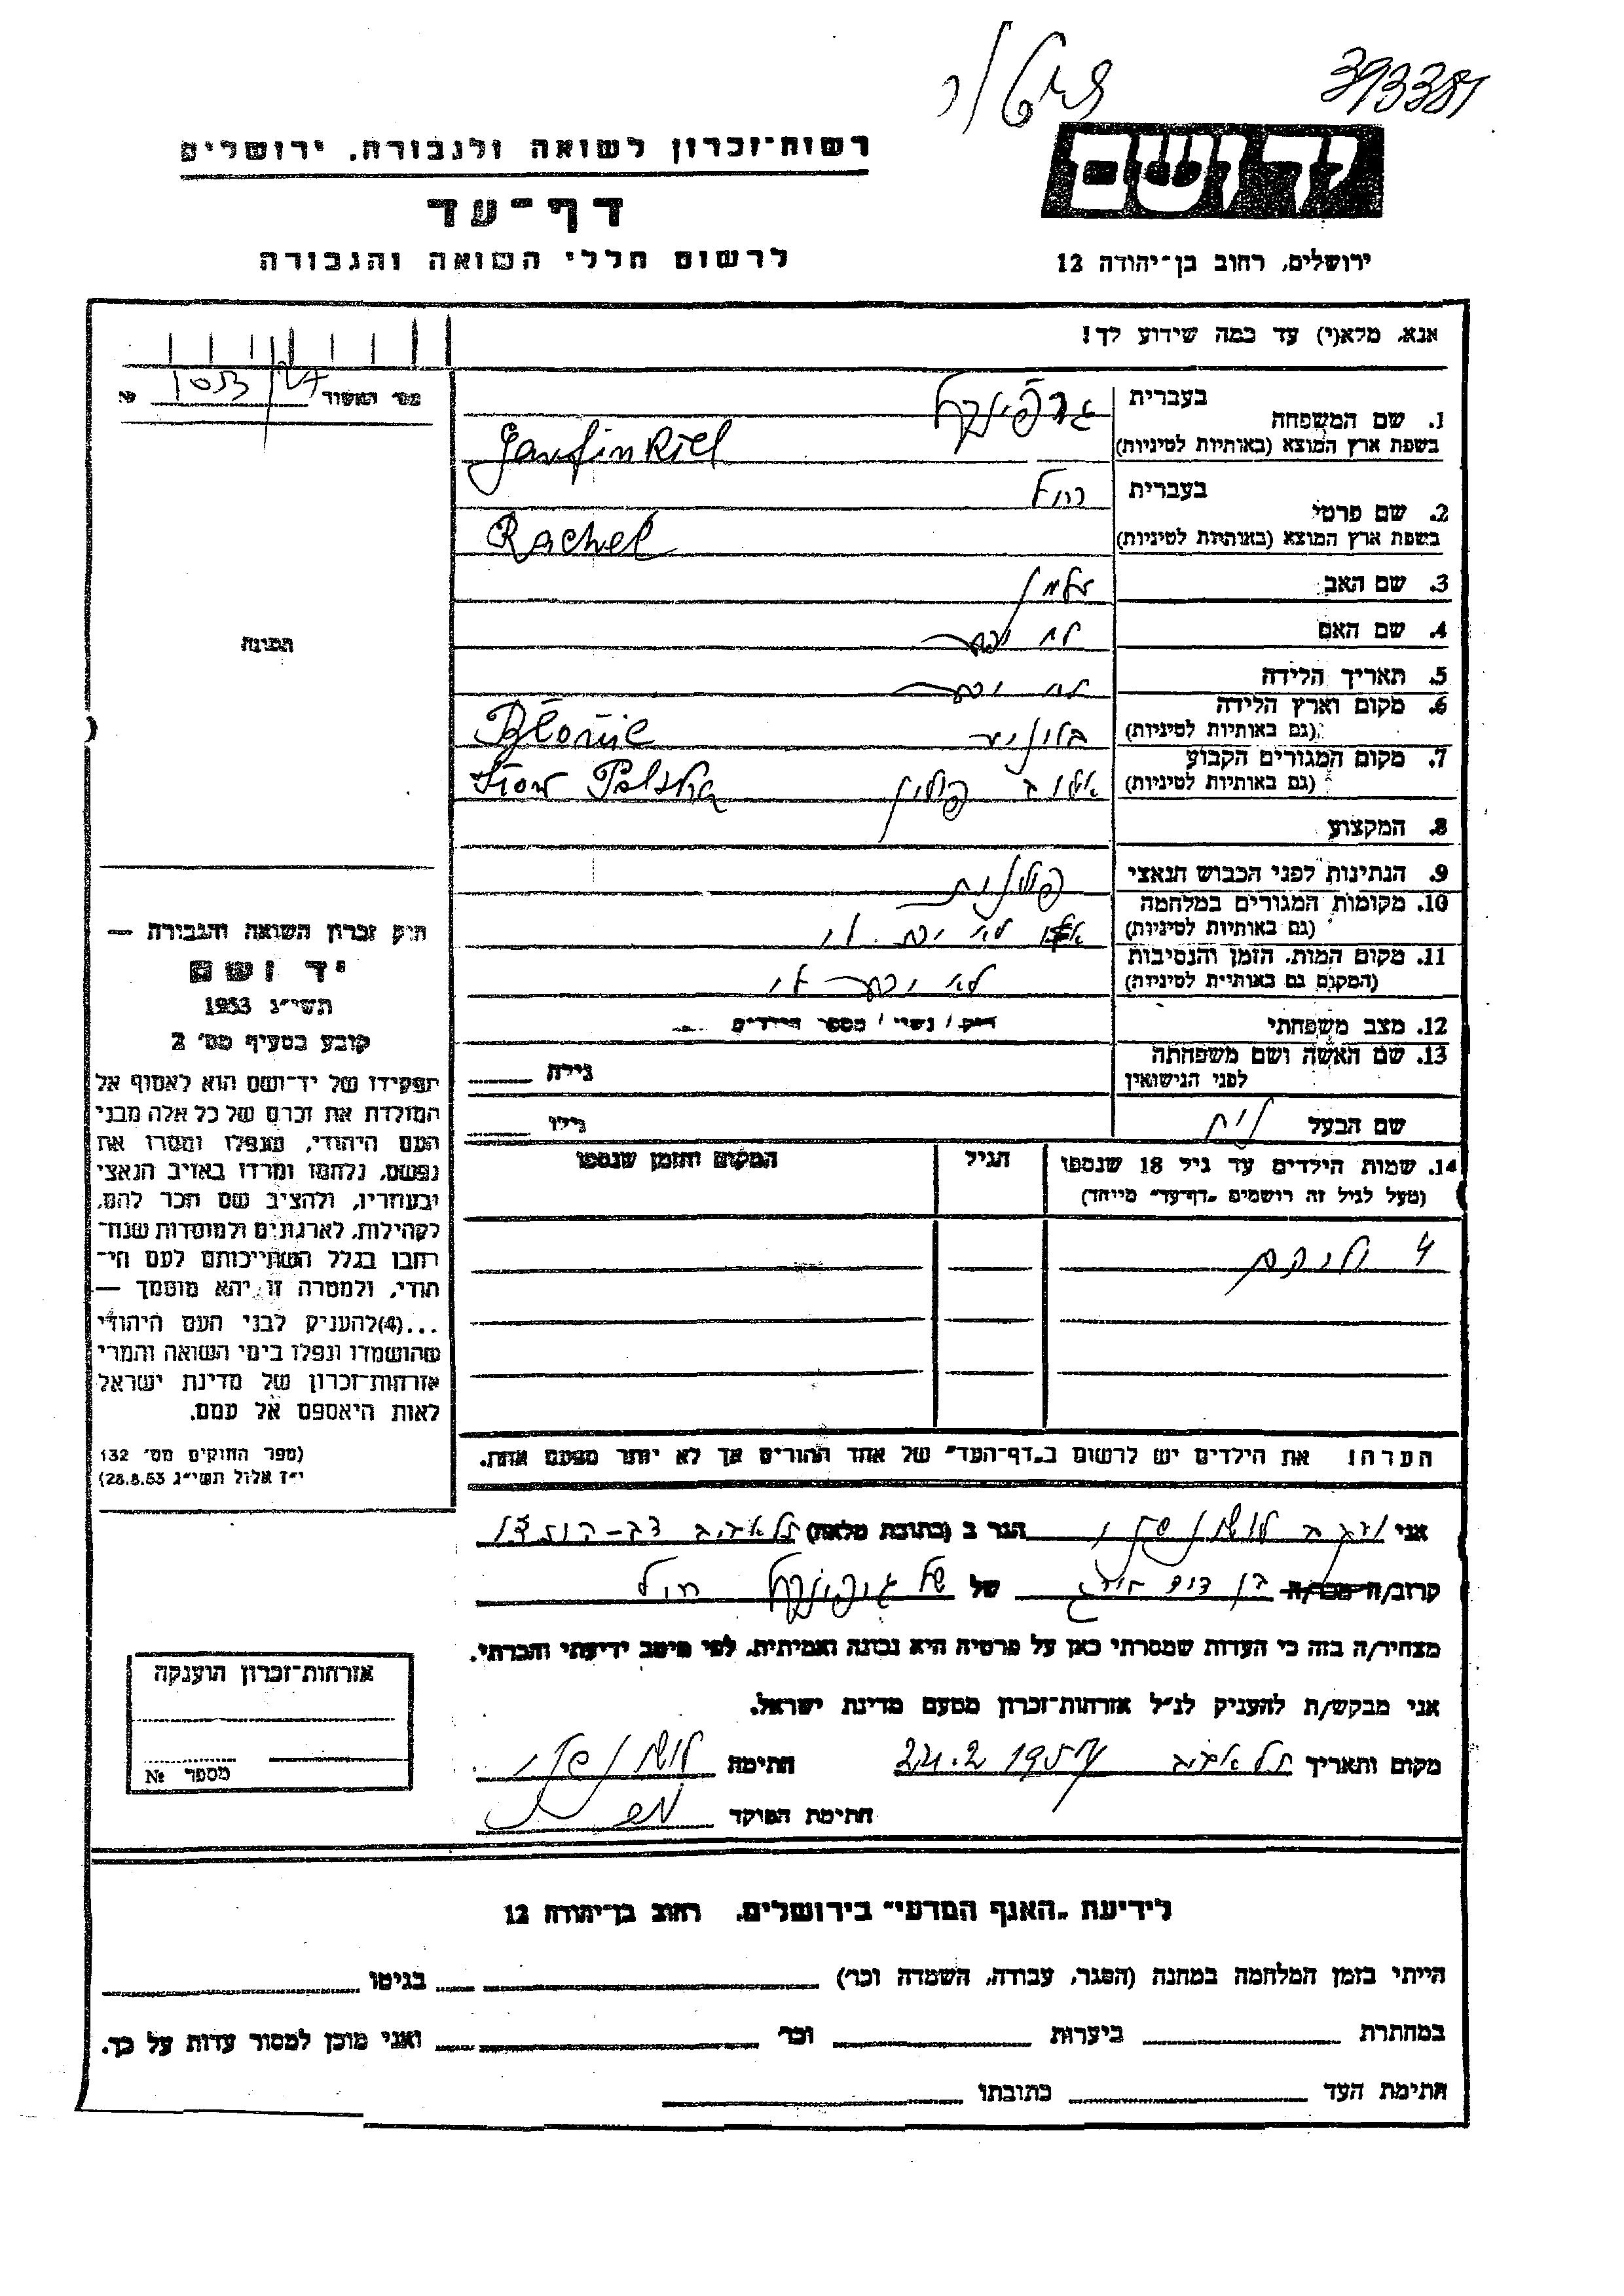 393381
יד ושם
רשות-זכרון לשואה ולגבורה, ירושלים
דף-עד
לרשום חללי השואה והגבורה
ירושלים, רחוב בן-יהודה 12
אנא, מלא(י) עד כמה שידוע לך!
מס' האשור 1053 №
1. שם המשפחה
בעברית גרפינקל
בשפת ארץ המוצא (באותיות לטיניות) Garfinkiel
2. שם פרטי
בעברית רחל
בשפת ארץ המוצא (באותיות לטיניות) Rachel
3. שם האב זלמן
4. שם האם לא ידוע
5. תאריך הלידה לא ידוע
6. מקום וארץ הלידה
(גם באותיות לטיניות) בלוניע Błonie
7. מקום המגורים הקבוע
(גם באותיות לטיניות) פולין Polska
8. המקצוע
9. הנתינות לפני הכבוש הנאצי פולנית
10. מקומות המגורים במלחמה
(גם באותיות לטיניות) לא ידוע לי
11. מקום המות, הזמן והנסיבות
(המקום גם באותיות לטיניות) לא ידוע לי
12. מצב משפחתי רווק / נשוי / מספר הילדים
13. שם האשה ושם משפחתה
לפני הנישואין גילה
שם הבעל גילו
14. שמות הילדים עד גיל 18 שנספו הגיל המקום והזמן שנספו
(מעל לגיל זה רושמים "דף-עד" מיוחד)
4 ילדים
הערה: את הילדים יש לרשום ב"דף-העד" של אחד ההורים אך לא יותר מפעם אחת.
תמונה
חוק זכרון השואה והגבורה —
יד ושם
תשי"ג 1953
קובע בסעיף מס' 2
תפקידו של יד-ושם הוא לאסוף אל
המולדת את זכרם של כל אלה מבני
העם היהודי, שנפלו ומסרו את
נפשם, נלחמו ומרדו באויב הנאצי
ובעוזריו, ולהציב שם וזכר להם,
לקהילות, לארגונים ולמוסדות שנח-
רבו בגלל השתייכותם לעם היה-
הודי, ולמטרה זו יהא מוסמך —
...(4)להעניק לבני העם היהודי
שהושמדו ונפלו בימי השואה והמרי
אזרחות-זכרון של מדינת ישראל
לאות היאספם אל עמם.
(ספר החוקים מס' 132
י"ז אלול תשי"ג 28.8.53)
אני יעקב הגר ב (כתובת מלאה) תל אביב
קרוב/ה מכר/ה בן דוד של גרפינקל רחל
מצהיר/ה בזה כי העדות שמסרתי כאן על פרטיה היא נכונה ואמיתית, לפי מיטב ידיעתי והכרתי.
אני מבקש/ת להעניק לנ"ל אזרחות-זכרון מטעם מדינת ישראל.
מקום ותאריך תל אביב 24.2.1957 חתימה
חתימת הפוקד
אזרחות-זכרון הוענקה
מספר №
לידיעת "האגף המדעי" בירושלים, רחוב בן-יהודה 12
הייתי בזמן המלחמה במחנה (הסגר, עבודה, השמדה וכו') בגיטו
במחתרת ביערות וכו' ואני מוכן למסור עדות על כך.
חתימת העד כתובתו